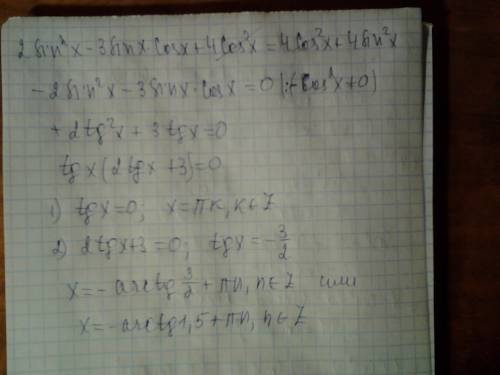 2sin²x-3sinx·cosx+4cos²x=4cos²x+4sin²x
-2sin²x-3sinx·cosx=0 |:(-cos²x≠0)
+2tg²x+3tgx=0
tgx(2tgx+3)=0
1) tgx=0; x=πk, k∈Z
2) 2tgx+3=0; tgx=-3/2
x=-arctg 3/2+πn, n∈Z или
x=-arctg1,5+πn, n∈Z